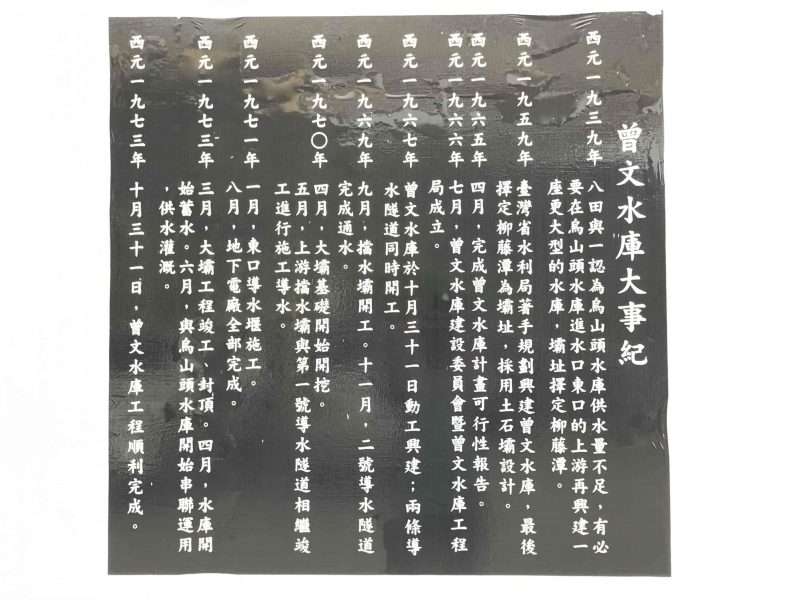 曾文水庫大事紀
西元一九三九年 八田與一認為烏山頭水庫供水量不足，有必
要在烏山頭水庫進水口東口的上游再興建一
座更大型的水庫，壩址擇定柳藤潭。
西元一九五九年 臺灣省水利局著手規劃興建曾文水庫，最後
擇定柳藤潭為壩址，採用土石壩設計。
西元一九六五年 四月，完成曾文水庫計畫可行性報告。
西元一九六六年 七月，曾文水庫建設委員會暨曾文水庫工程
局成立。
西元一九六七年 曾文水庫於十月三十一日動工興建；兩條導
水隧道同時開工。
西元一九六九年 九月，擋水壩開工。十一月，二號導水隧道
完成通水。
西元一九七〇年 四月，大壩基礎開始開挖。
五月，上游擋水壩與第一號導水隧道相繼竣
工進行施工導水。
西元一九七一年 一月，東口導水堰施工。
八月，地下電廠全部完成。
西元一九七三年 三月，大壩工程竣工、封頂。四月，水庫開
始蓄水。六月，與烏山頭水庫開始串聯運用
，供水灌溉。
西元一九七三年 十月三十一日，曾文水庫工程順利完成。